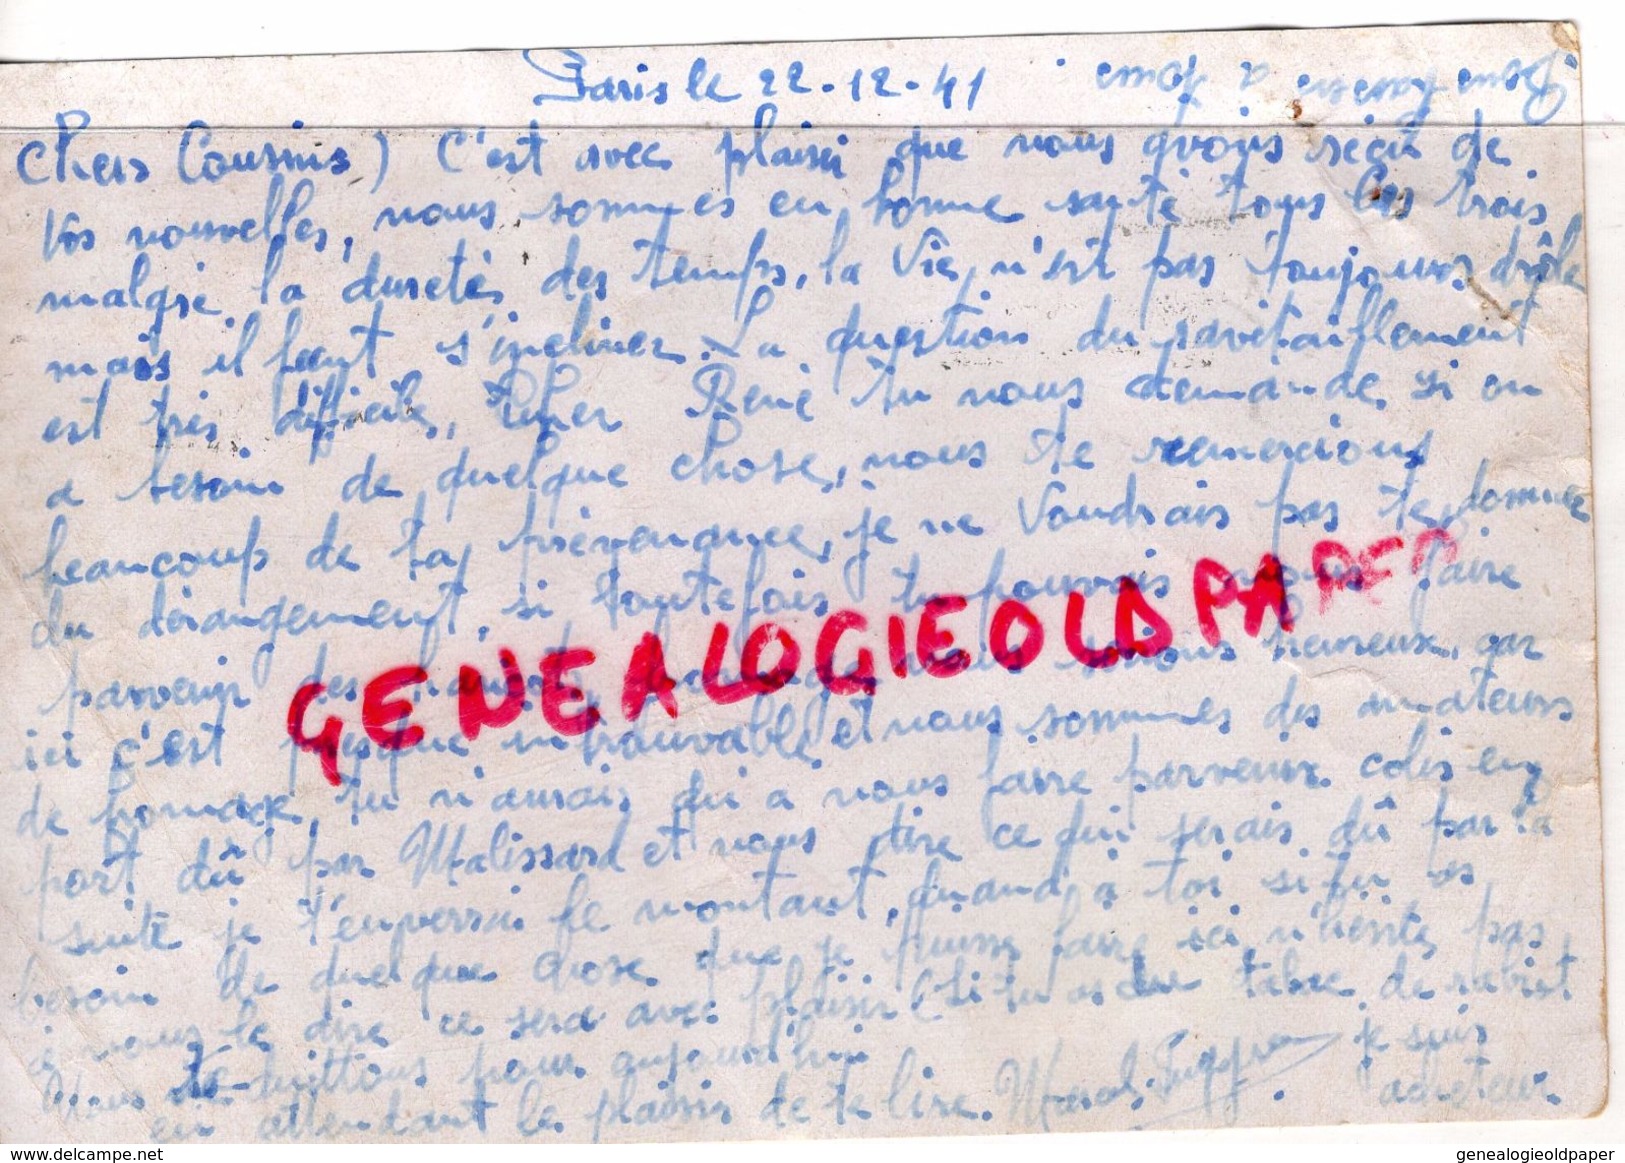 Paris le 22-12-41
Chers Cousins) C'est avec plaisir que nous avons reçu de
vos nouvelles, nous sommes en bonne santé tous les trois
malgré la dureté des temps, la vie, n'est pas toujours drôle
mais il faut s'incliner. La question du ravitaillement
est très difficile, Cher René tu nous demande si on
a besoin de quelque chose, nous te remercions
beaucoup de ta prévenance, je ne voudrais pas te donner
du dérangement, si toutefois tu pouvais nous faire
parvenir des fromage nous serions heureux, car
ici c'est presque introuvable et nous sommes des amateurs
de fromage, tu n'aurais qu'a nous faire parvenir colis en
port dû par Malissard et nous dire ce qui serais dû par la
suite je t'enverrai le montant, quand à toi si tu as
besoin de quelque chose que je puisse faire ici n'hésite pas
à nous le dire ce sera avec plaisir (si tu as du tabac de rabiot
Nous te quittons pour aujourd'hui je suis
en attendant le plaisir de te lire. Marcel acheteur.
GENEALOGIEOLDPAPER
delcampe.net
genealogieoldpaper